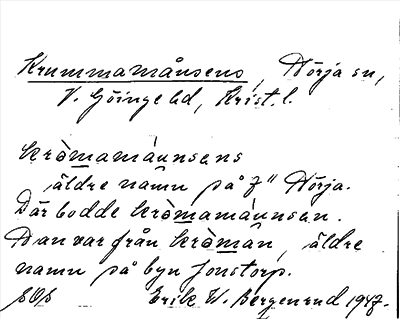 Krummamånsens, Nörja sn,
V. Göinge hd, Krist. l.
kròmamáunsans
äldre namn på 7" Nörja.
Där bodde kròmamáunsan.
Dan var från kròmân, äldre
namn på byn Jonstorp.
Erik W. Bergenrud 1947.